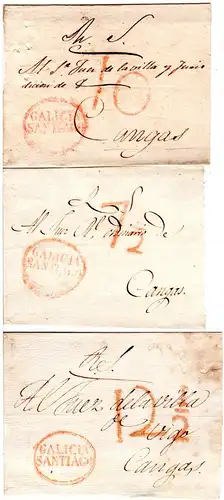 A. S.
10
Al Sr. Juez de la villa y Juris
dicion de
GALICIA
SANTIAGO
Cangas
S.
7 1/2
Al Sr.
de
GALICIA
SANTIAGO
Cangas.
A. S.
12 1/2
Al Juez de la villa
de Vigo
GALICIA
SANTIAGO
Cangas.